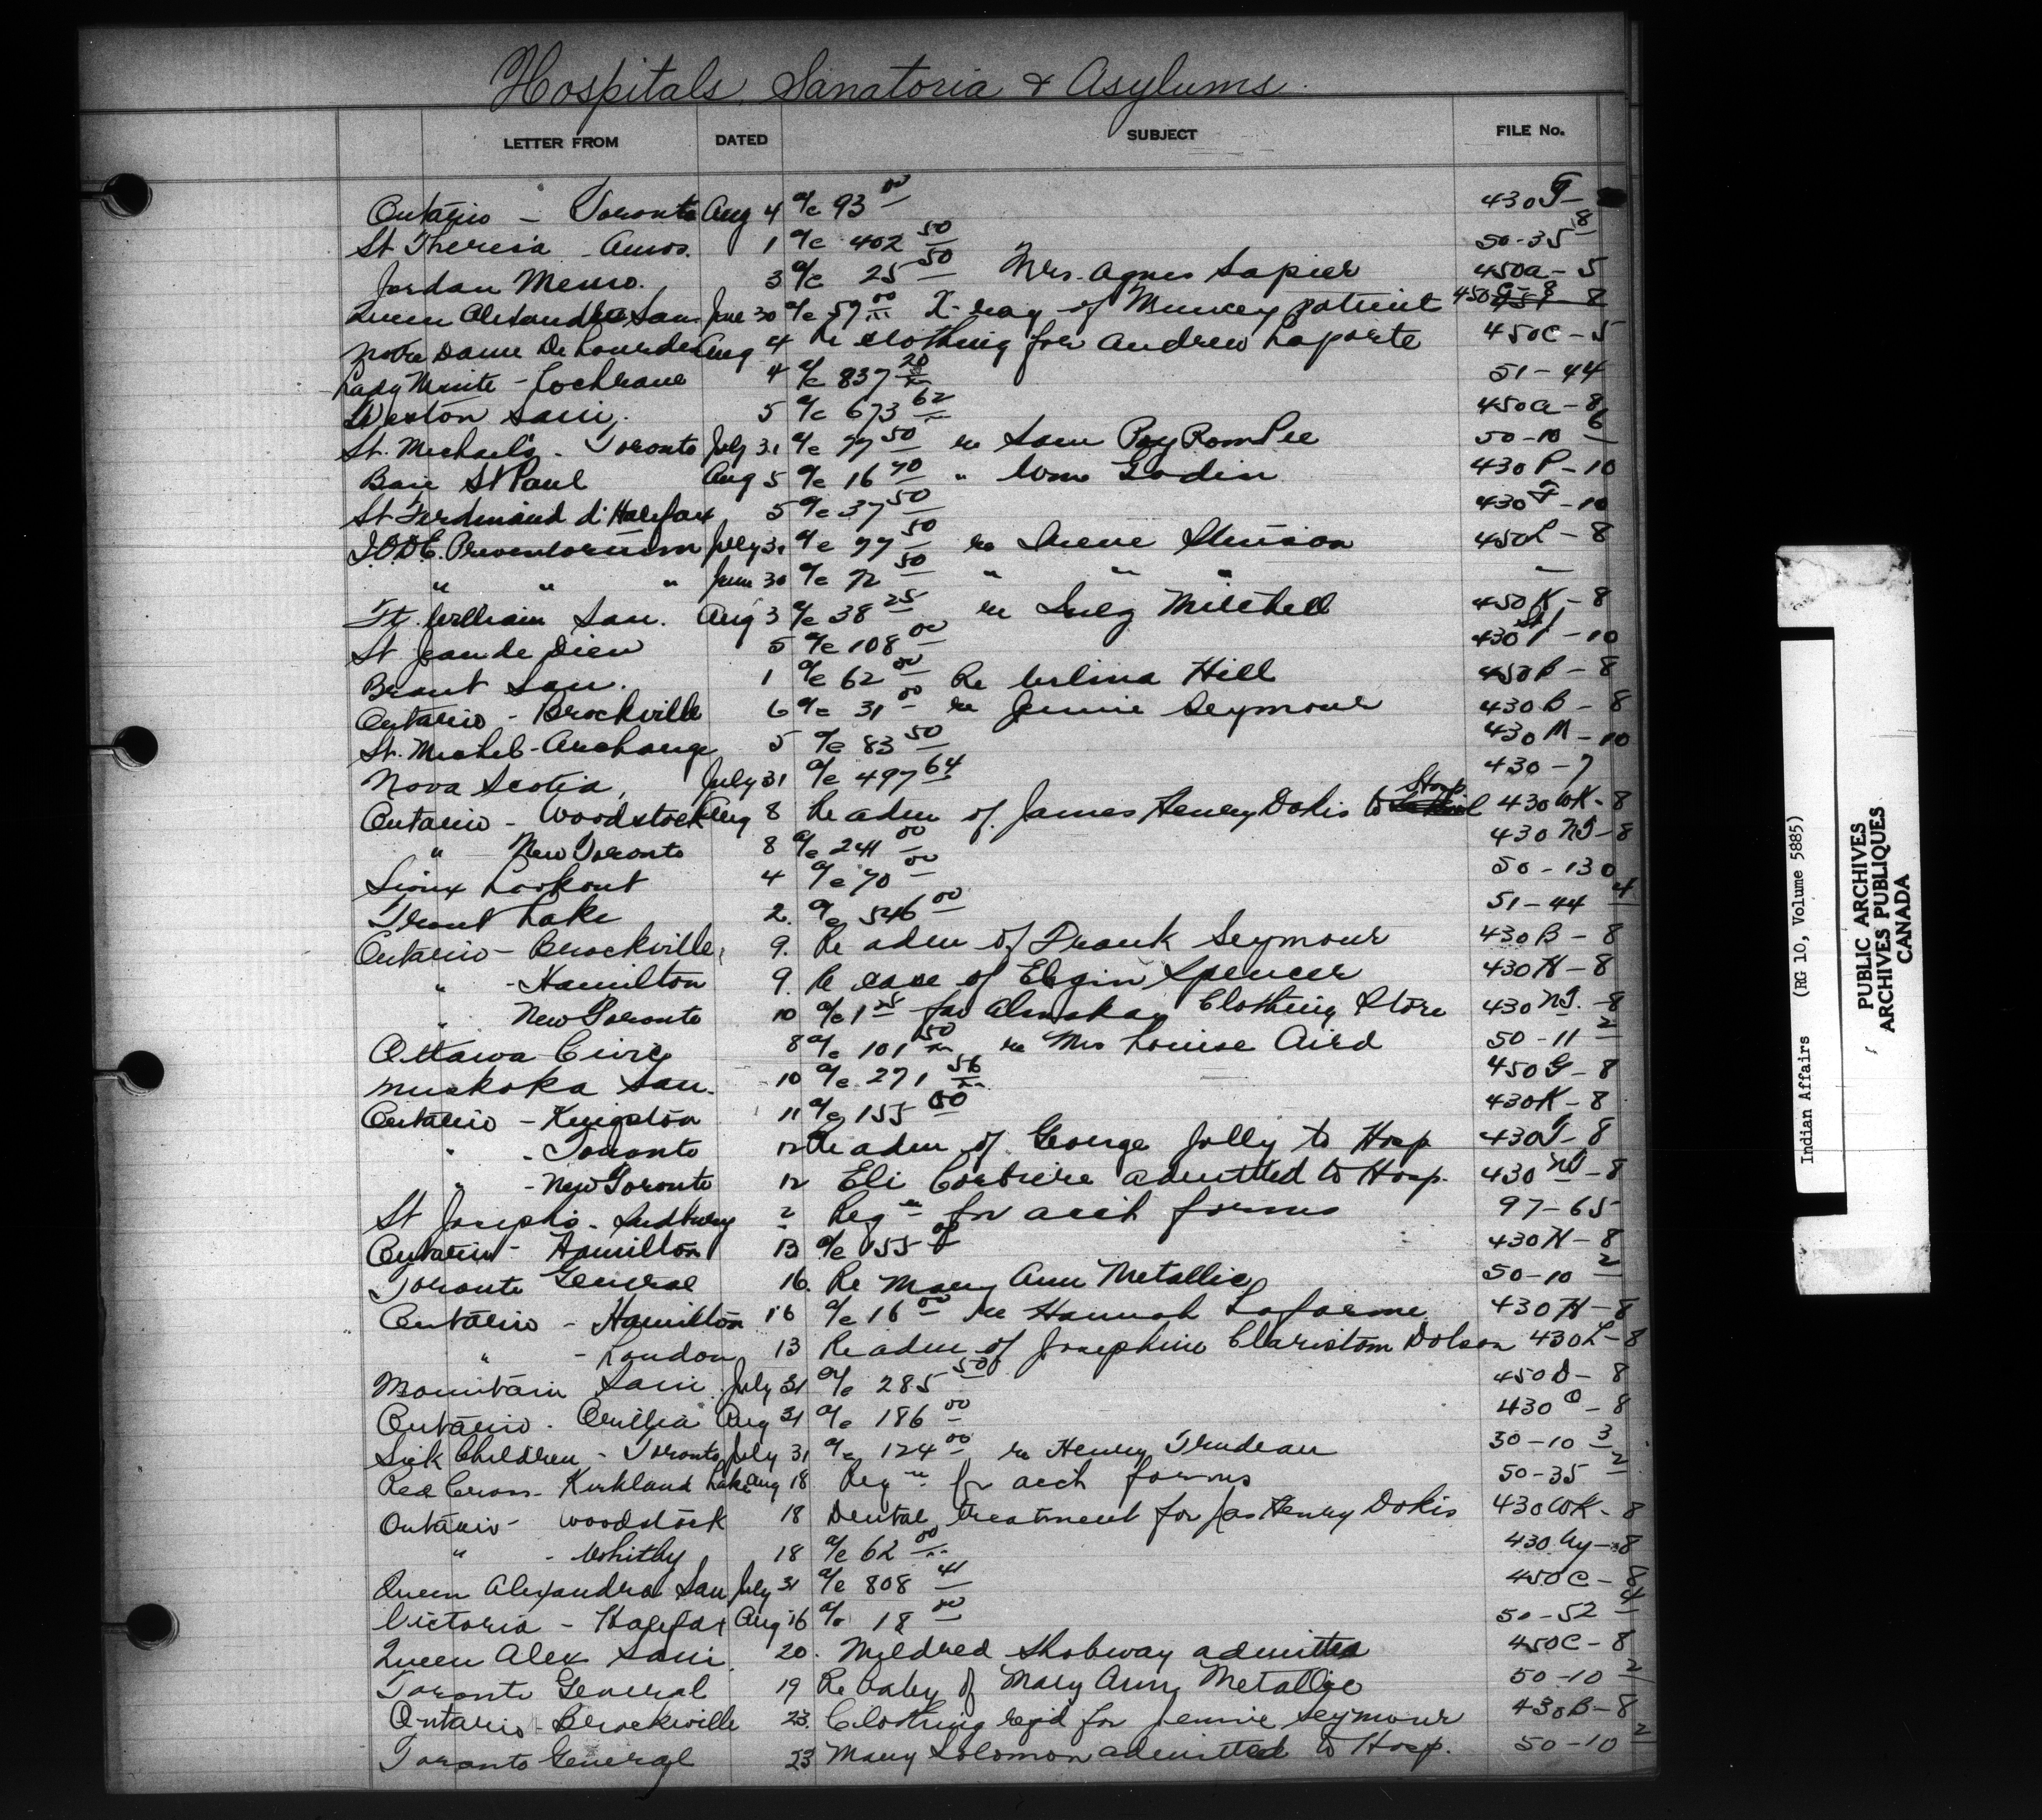 Hospitals, Sanatoria & Asylums.
LETTER FROM DATED SUBJECT FILE No.
Ontario - Toronto Aug 4 a/c 93 00 430 T-
St Theresa - Amos. 1 a/c 402 50 50-35 8
Jordan Memo. 3 a/c 25 50 Mrs. Agnes Sapier 450a-5
Queen Alexandra San. June 30 a/c 57 00 X-ray of Muncey patients 450 C-8
Notre Dame De Lourdes Aug 4 Re clothing for Andrew Laporte 450C-5
Lady Minto - Cochrane 4 a/c 837 20 51-44
Weston Sani. 5 a/c 673 62 450a-8
St. Michael's - Toronto July 31 a/c 77 50 re Sam 50-10 6
Baie St Paul Aug 5 a/c 16 70 " Wm Godin 430 P-10
St Ferdinand d'Halifax 5 a/c 37 50 430 F-10
I.O.D.E. Preventorium July 31 a/c 77 50 re Irene Stinson 450L-8
" " " June 30 a/c 72 50 " " " -
Ft. William San. Aug 3 a/c 38 25 re Mitchell 450K-8
St Jean de Dieu 5 a/c 108 00 430 -10
Brant San. 1 a/c 62 00 Re Hill 450B-8
Ontario - Brockville 6 a/c 31 00 re Jennie Seymour 430B-8
St. Michel-Archange 5 a/c 83 50 430 M-10
Nova Scotia, July 31 a/c 497 64 430-7
Ontario - Woodstock Aug 8 Re adm of James Henry Dokis to Hosp 430 WK-8
" New Toronto 8 a/c 241 00 430 NT-8
Sioux Lookout 4 a/c 70 00 50-130
Trout Lake 2. a/c 546 00 51-44 4
Ontario - Brockville, 9. Re adm of Frank Seymour 430B-8
" - Hamilton 9. Re case of Elgin Spencer 430H-8
" New Toronto 10 a/c 1 25 for Clothing Store 430 NT.-8
Ottawa Civic 8 a/c 101 50 re Mrs Louise Aird 50-11 2
Muskoka San. 10 a/c 271 56 450G-8
Ontario - Kingston 11 a/c 155 00 430K-8
" - Toronto 12 Re adm of George Jolly to Hosp 430T-8
" - New Toronto 12 Eli Corbiere admitted to Hosp. 430 NT-8
St Joseph's - Sudbury 2 Reqn for acct forms 97-65
Ontario - Hamilton 13 a/c 155 00 430H-8
Toronto General 16. Re Mary Ann Metallic 50-10 2
Ontario - Hamilton 16 a/c 16 00 re Hannah Laforme 430H-8
" - London 13 Re adm of Josephine Dolson 430L-8
Mountain Sani. July 31 a/c 285 50 450D-8
Ontario - Orillia Aug 31 a/c 186 00 430 O-8
Sick Children - Toronto July 31 a/c 124 00 re Henry Trudeau 30-10 3
Red Cross - Kirkland Lake Aug 18 Reqn for acct forms 50-35 2
Ontario - Woodstock 18 Dental treatment for Jas Henry Dokis 430WK-8
" - Whitby 18 a/c 62 00 430 Wy-8
Queen Alexandra San July 31 a/c 808 41 450C-8
Victoria - Halifax Aug 16 a/c 18 00 50-52 4
Queen Alex Sani. 20. Mildred Shobway admitted 450C-8
Toronto General 19 Re baby of Mary Ann Metallic 50-10 2
Ontario - Brockville 23. Clothing reqd for Jennie Seymour 430B-8
Toronto General 23 Mary Solomon admitted to Hosp. 50-10 2
Indian Affairs (RG 10, Volume 5885)
PUBLIC ARCHIVES
ARCHIVES PUBLIQUES
CANADA